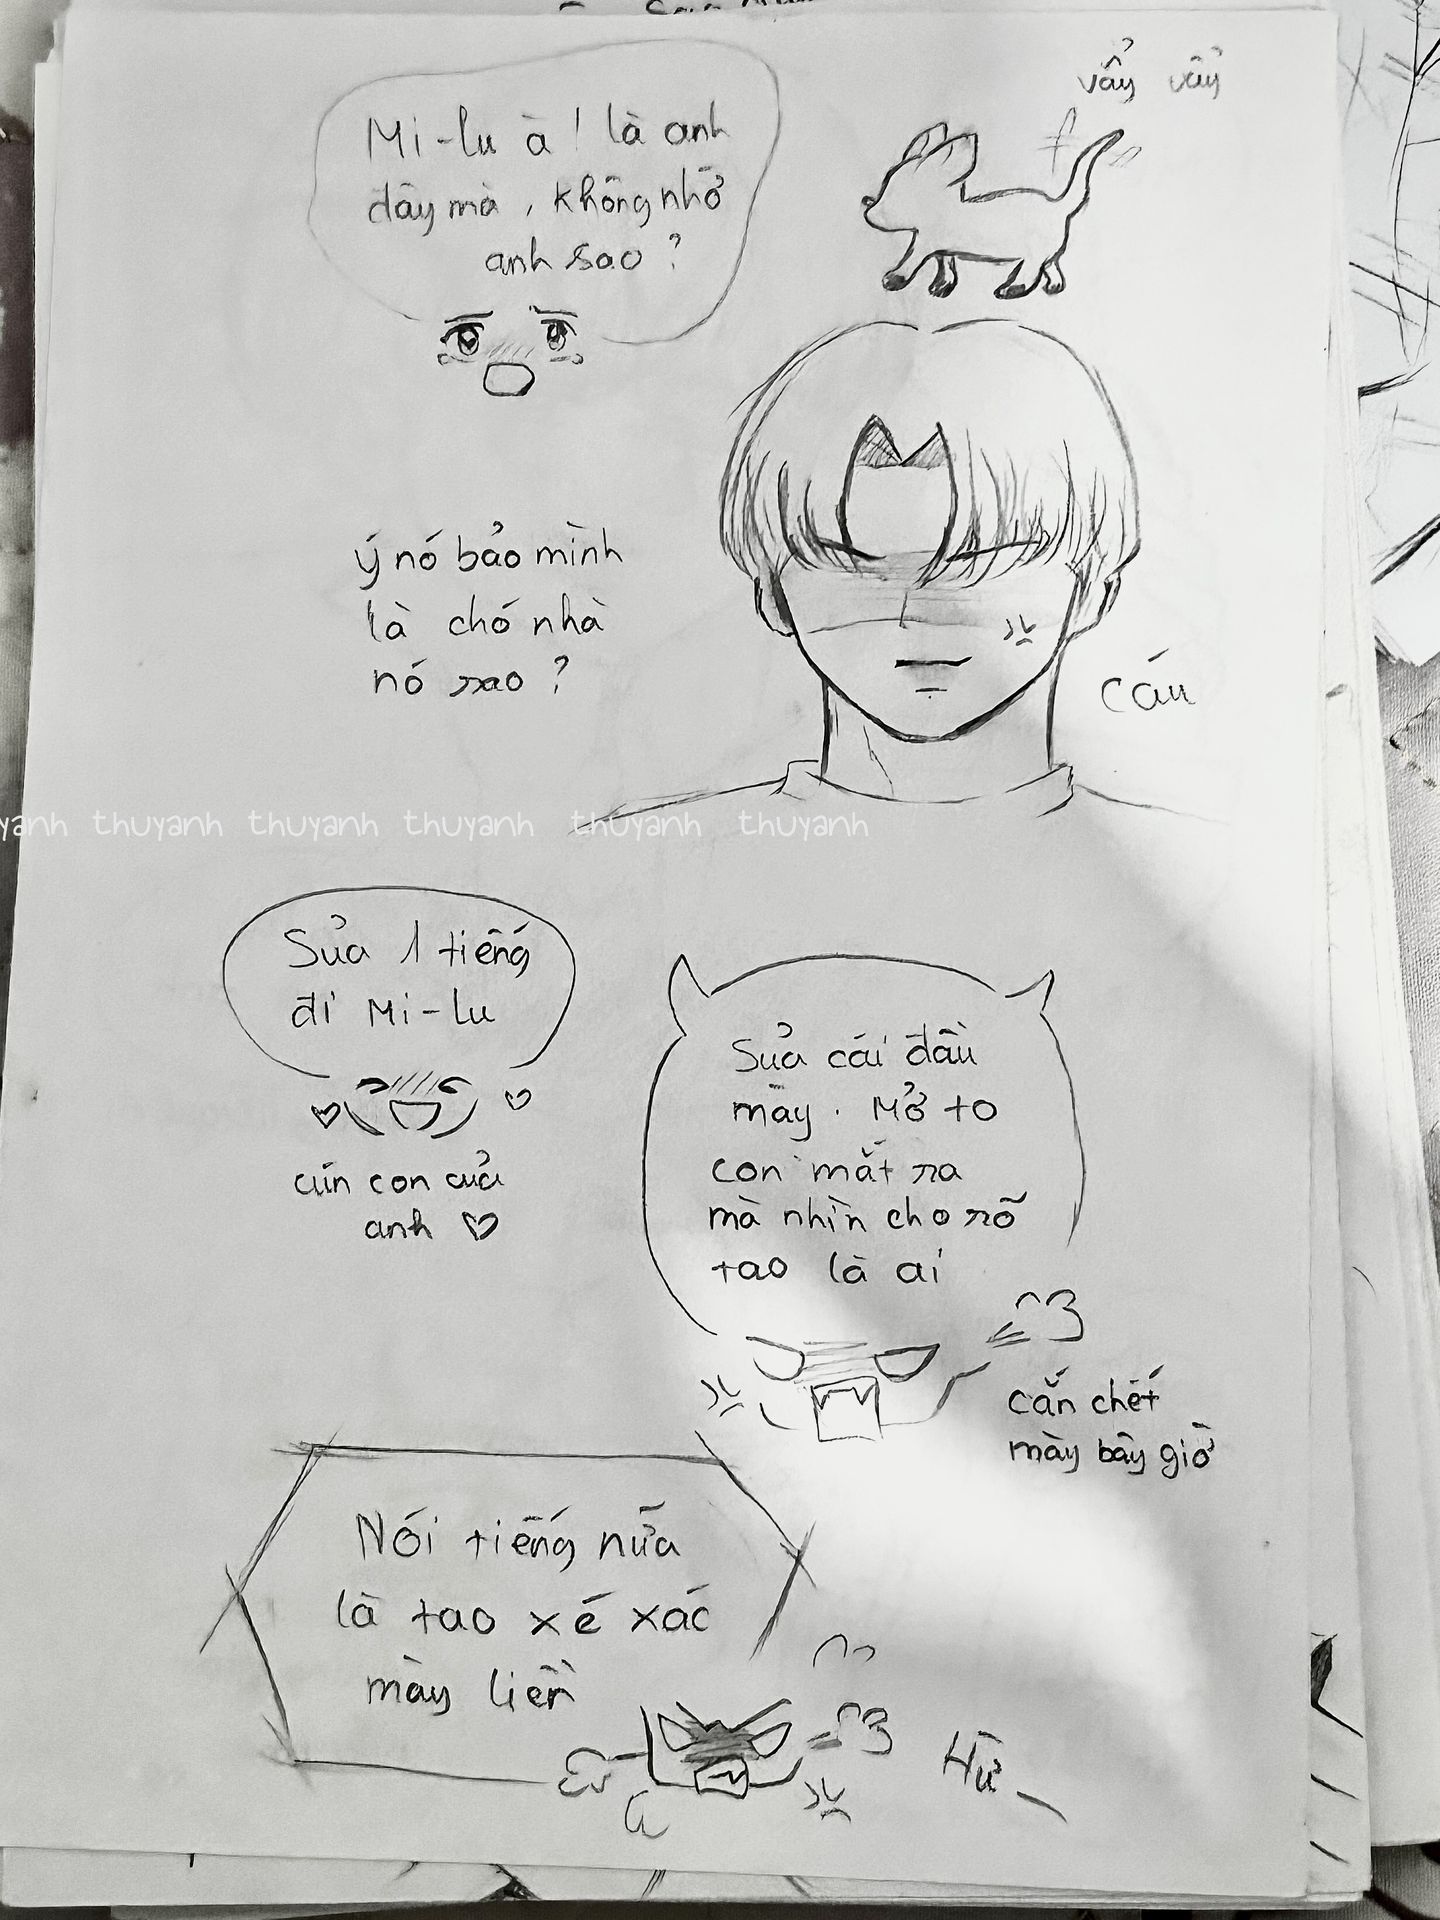 vẩy vẩy
Mi-lu à! là anh
đây mà, không nhớ
anh sao?
ý nó bảo mình
là chó nhà
nó sao?
cáu
thuyanh thuyanh thuyanh thuyanh thuyanh
Sủa 1 tiếng
đi Mi-lu
cún con của
anh ♡
Sủa cái đầu
mày. Mở to
con mắt ra
mà nhìn cho rõ
tao là ai
cắn chết
mày bây giờ
Nói tiếng nữa
là tao xé xác
mày liền
Hừ